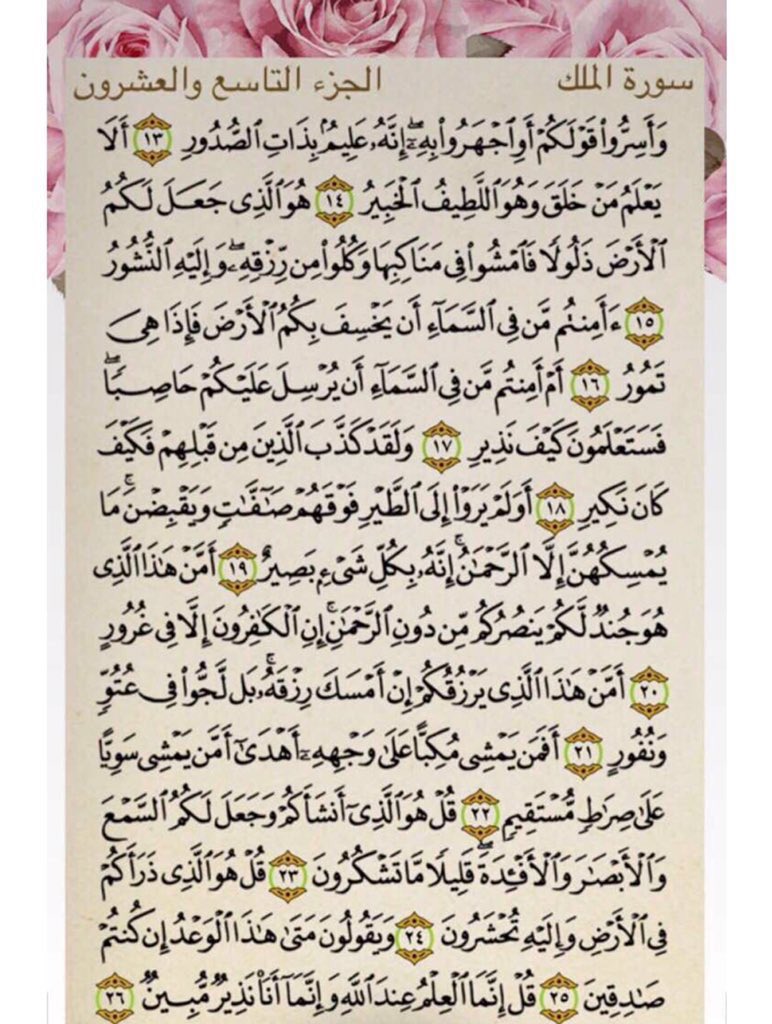 سورة الملك الجزء التاسع والعشرون
وَأَسِرُّوا۟ قَوْلَكُمْ أَوِ ٱجْهَرُوا۟ بِهِۦٓ ۖ إِنَّهُۥ عَلِيمٌۢ بِذَاتِ ٱلصُّدُورِ ١٣ أَلَا
يَعْلَمُ مَنْ خَلَقَ وَهُوَ ٱللَّطِيفُ ٱلْخَبِيرُ ١٤ هُوَ ٱلَّذِى جَعَلَ لَكُمُ
ٱلْأَرْضَ ذَلُولًا فَٱمْشُوا۟ فِى مَنَاكِبِهَا وَكُلُوا۟ مِن رِّزْقِهِۦ ۖ وَإِلَيْهِ ٱلنُّشُورُ
١٥ ءَأَمِنتُم مَّن فِى ٱلسَّمَآءِ أَن يَخْسِفَ بِكُمُ ٱلْأَرْضَ فَإِذَا هِىَ
تَمُورُ ١٦ أَمْ أَمِنتُم مَّن فِى ٱلسَّمَآءِ أَن يُرْسِلَ عَلَيْكُمْ حَاصِبًا ۖ
فَسَتَعْلَمُونَ كَيْفَ نَذِيرِ ١٧ وَلَقَدْ كَذَّبَ ٱلَّذِينَ مِن قَبْلِهِمْ فَكَيْفَ
كَانَ نَكِيرِ ١٨ أَوَلَمْ يَرَوْا۟ إِلَى ٱلطَّيْرِ فَوْقَهُمْ صَـٰٓفَّـٰتٍ وَيَقْبِضْنَ ۚ مَا
يُمْسِكُهُنَّ إِلَّا ٱلرَّحْمَـٰنُ ۚ إِنَّهُۥ بِكُلِّ شَىْءٍۭ بَصِيرٌ ١٩ أَمَّنْ هَـٰذَا ٱلَّذِى
هُوَ جُندٌ لَّكُمْ يَنصُرُكُم مِّن دُونِ ٱلرَّحْمَـٰنِ ۚ إِنِ ٱلْكَـٰفِرُونَ إِلَّا فِى غُرُورٍ
٢٠ أَمَّنْ هَـٰذَا ٱلَّذِى يَرْزُقُكُمْ إِنْ أَمْسَكَ رِزْقَهُۥ ۚ بَل لَّجُّوا۟ فِى عُتُوٍّ
وَنُفُورٍ ٢١ أَفَمَن يَمْشِى مُكِبًّا عَلَىٰ وَجْهِهِۦٓ أَهْدَىٰٓ أَمَّن يَمْشِى سَوِيًّا
عَلَىٰ صِرَٰطٍ مُّسْتَقِيمٍ ٢٢ قُلْ هُوَ ٱلَّذِىٓ أَنشَأَكُمْ وَجَعَلَ لَكُمُ ٱلسَّمْعَ
وَٱلْأَبْصَـٰرَ وَٱلْأَفْـِٔدَةَ ۖ قَلِيلًا مَّا تَشْكُرُونَ ٢٣ قُلْ هُوَ ٱلَّذِى ذَرَأَكُمْ
فِى ٱلْأَرْضِ وَإِلَيْهِ تُحْشَرُونَ ٢٤ وَيَقُولُونَ مَتَىٰ هَـٰذَا ٱلْوَعْدُ إِن كُنتُمْ
صَـٰدِقِينَ ٢٥ قُلْ إِنَّمَا ٱلْعِلْمُ عِندَ ٱللَّهِ وَإِنَّمَآ أَنَا۠ نَذِيرٌ مُّبِينٌ ٢٦